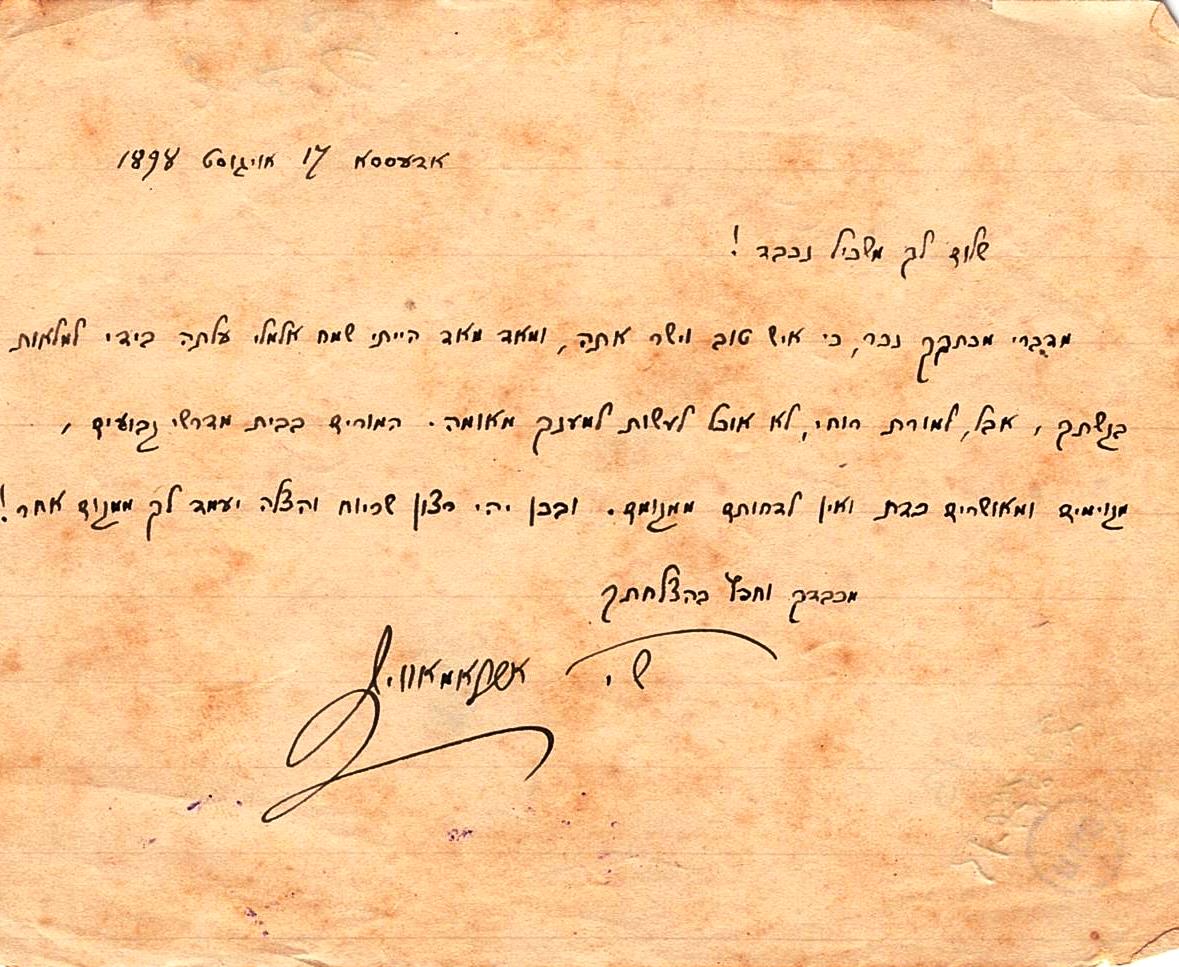 אדעססא 17 אויגוסט 1898
שלום לך משכיל נכבד!
מדברי מכתבך נכר, כי איש טוב וישר אתה, ומאד מאד הייתי שמח אלמלי עלתה בידי למלאות
בקשתך, אבל, למורת רוחי, לא אוכל לעשות למענך מאומה. המורים בבית מדרשי קבועים,
מנוימים ומאושרים כדת ואין לדחותם ממקומם. ובכן יהי רצון שריוח והצלה יעמד לך ממקום אחר!
מכבדך וחפץ בהצלחתך
ש י